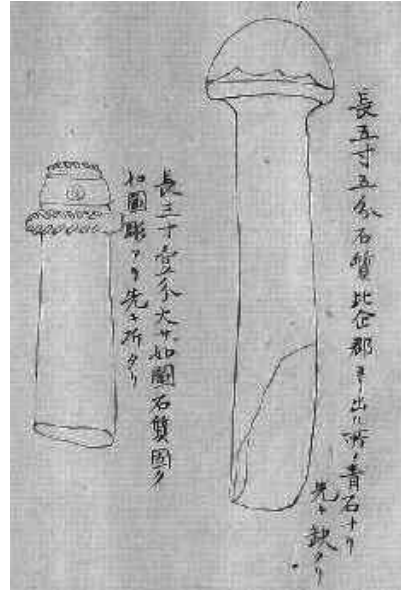 長五寸五分石質比企郡ヨリ出ル所ノ青石ナリ
先キ欠タリ
長三寸壹分大サ如圖石質固ク
如圖彫アリ先キ折タリ